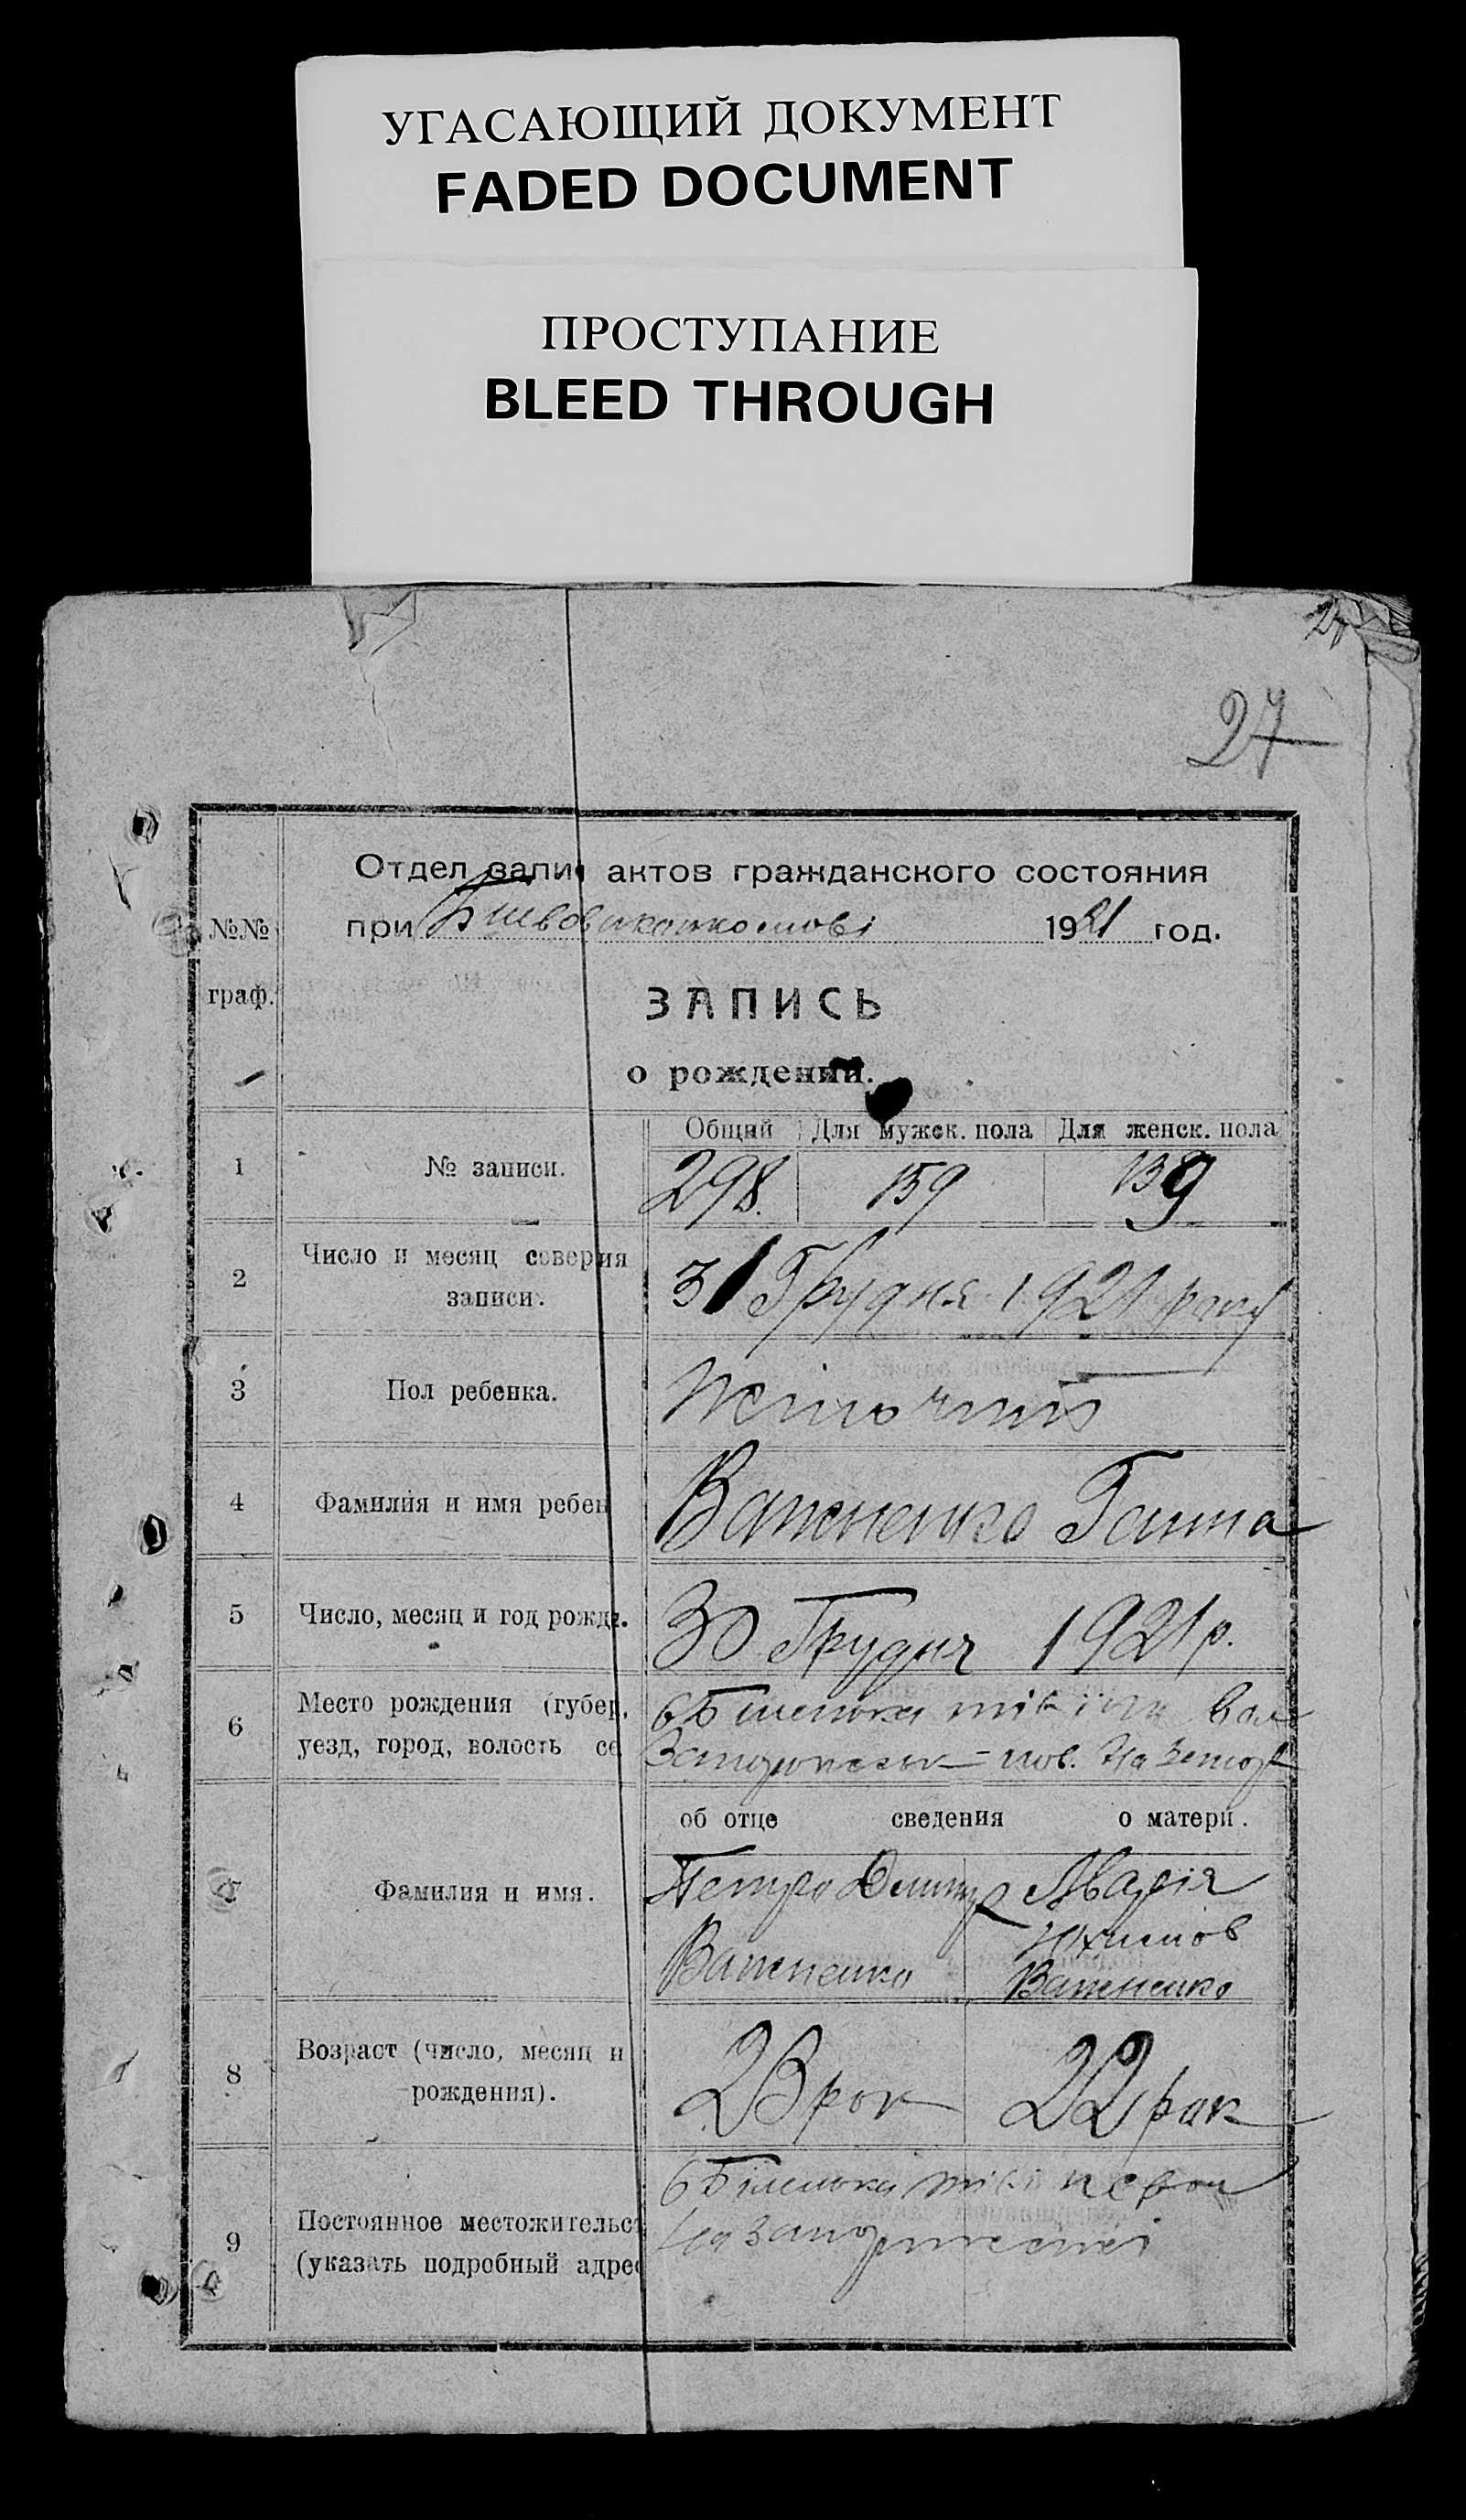 УГАСАЮЩИЙ ДОКУМЕНТ
FADED DOCUMENT
ПРОСТУПАНИЕ
BLEED THROUGH
27
27
Отдел запи актов гражданского состояния
№№ при 1921 год.
граф.
ЗАПИСЬ
о рождении.
Общий Для мужск. пола Для женск. пола
1 № записи. 298. 159 139
2 Число и месяц соверия
записи. 31 Грудня 1921 року
3 Пол ребенка. Жіночий
4 Фамилия и имя ребен Важненко Ганна
5 Число, месяц и год рожд. 30 Грудня 1921 р.
Место рождения (губер,
6
уезд, город, волость се пов.
об отце сведения о матери.
7 Фамилия и имя. Петро Дмитр Марія
Юхимов
Важненко Важненко
Возраст (число, месяц и
8 23 рок 22 рок
рождения).
Постоянное местожительст
9
(указать подробный адрес